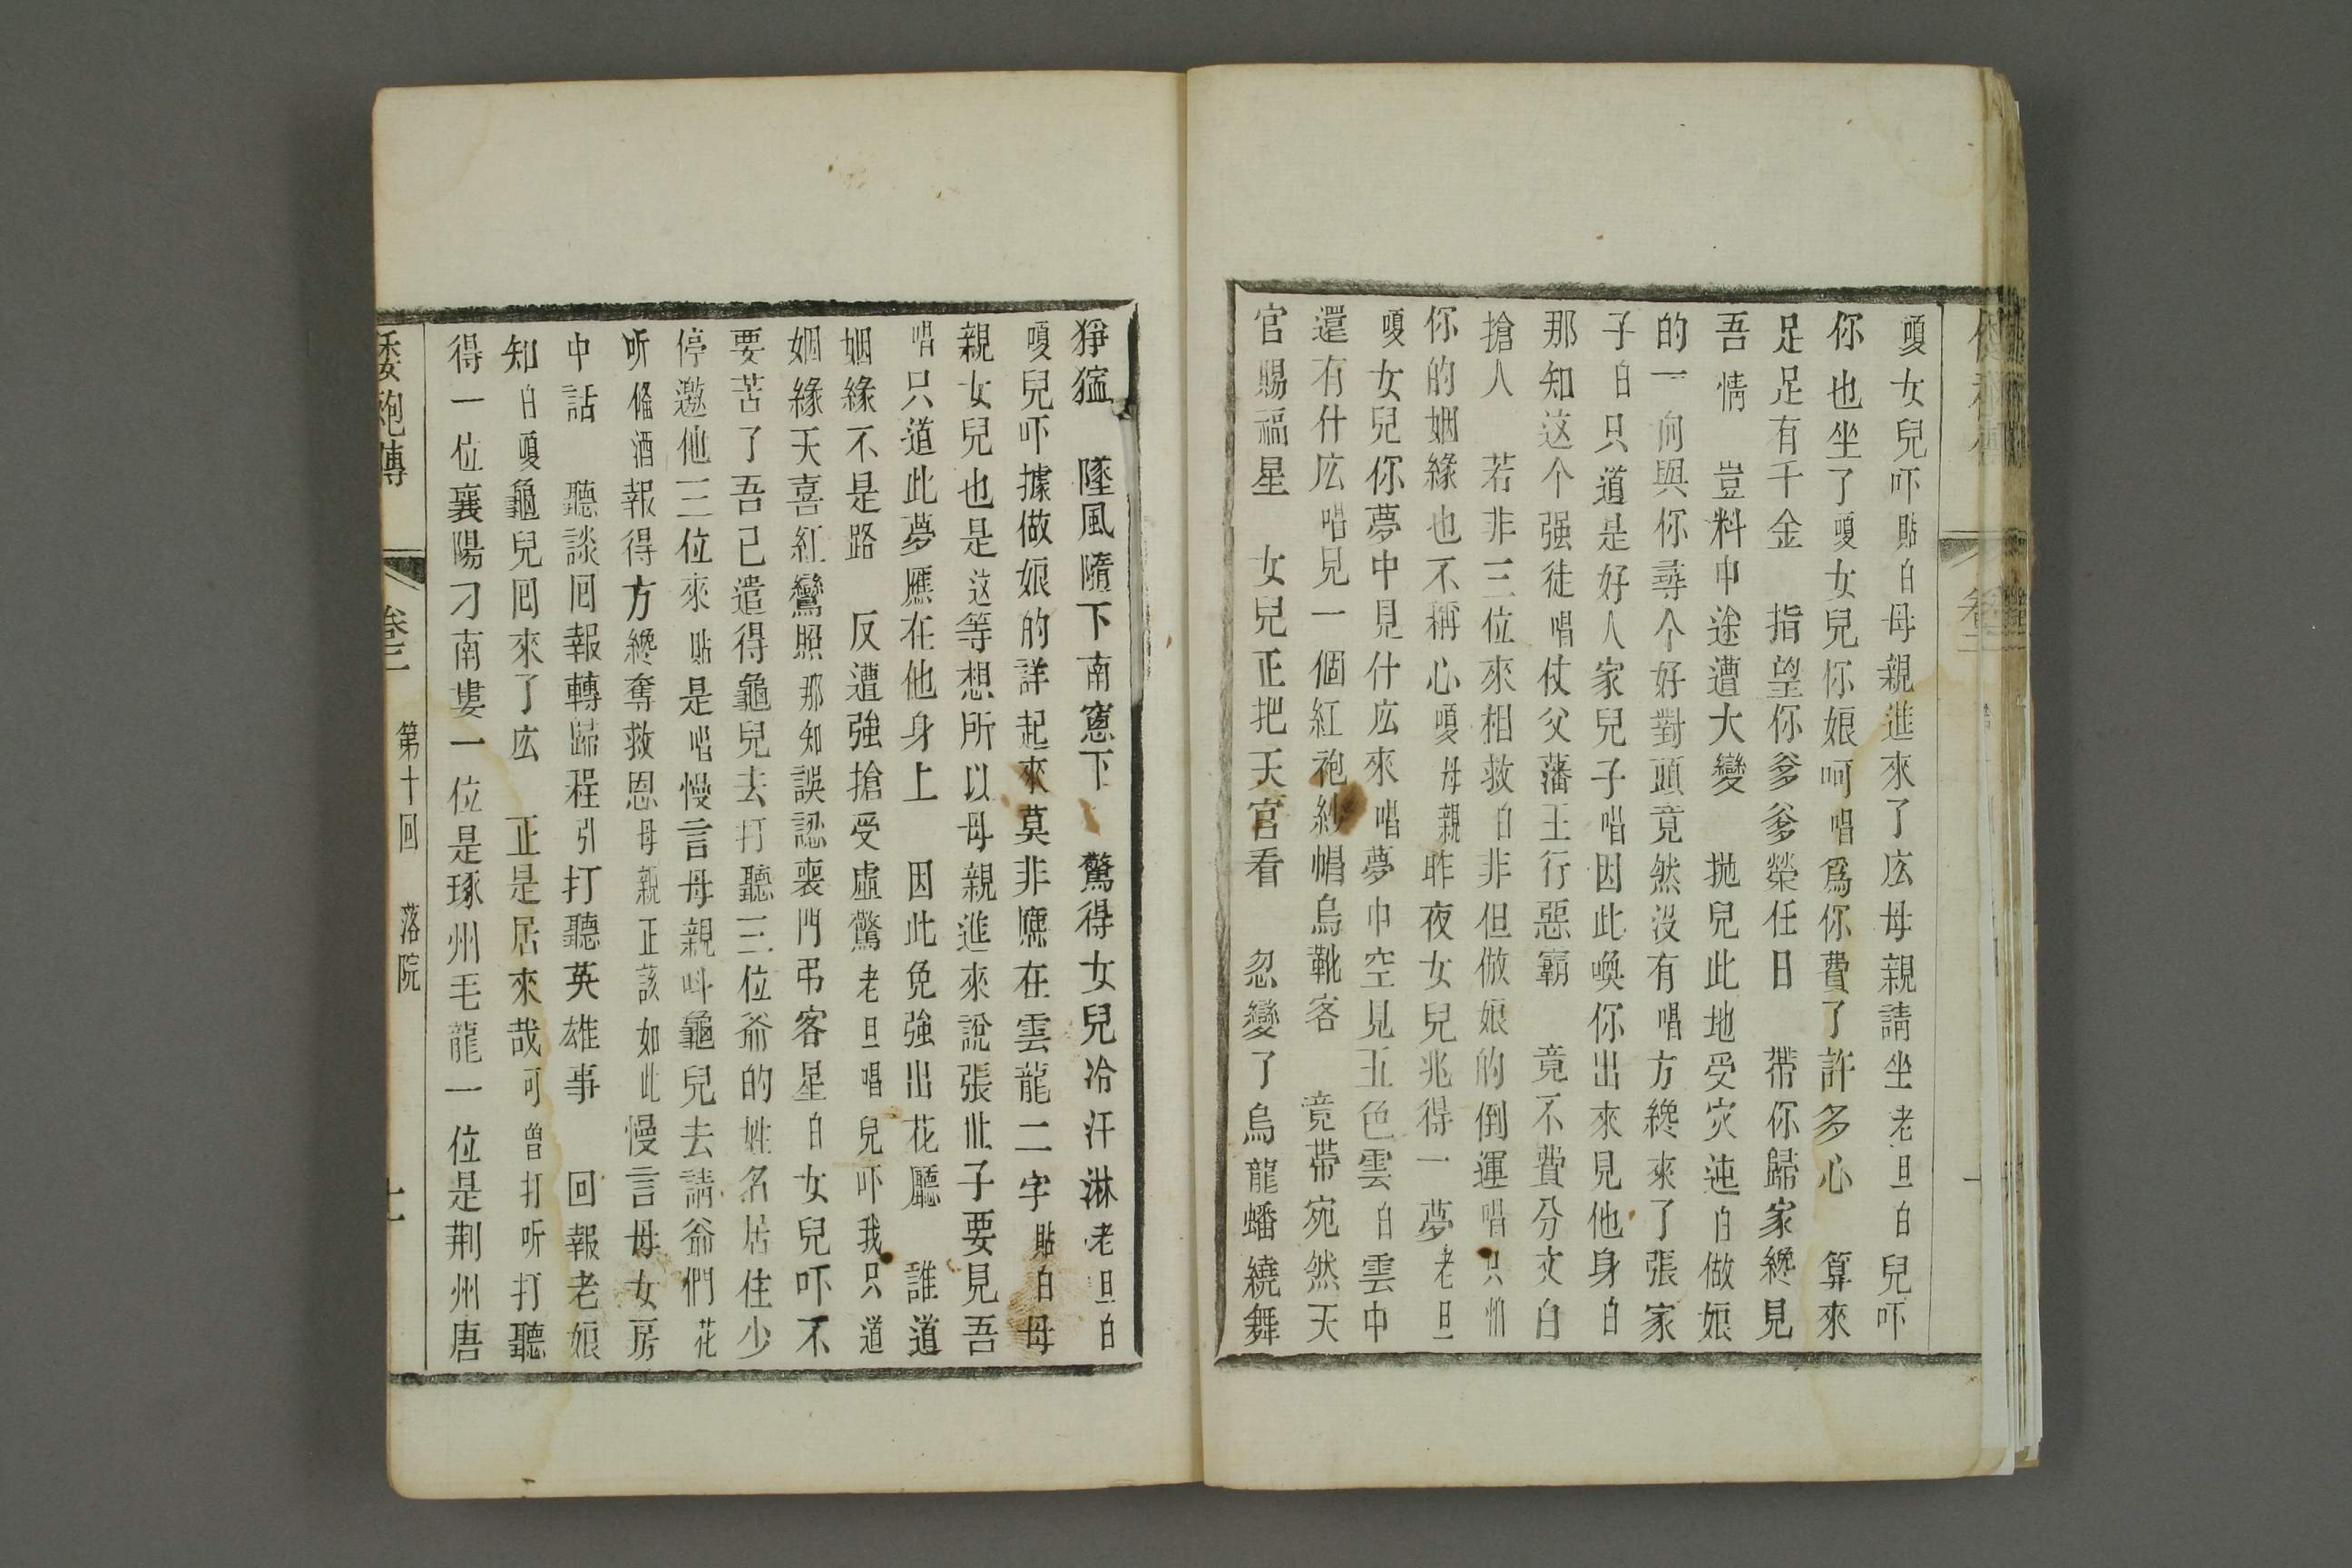 嗄女兒吓貼白母親進來了広母親請坐老旦白兒吓
你也坐了嗄女兒你娘呵唱爲你費了許多心　算來
足足有千金　指望你爹爹榮任日　帶你歸家纔見
吾情　豈料中途遭大變　拋兒此地受灾迍白做娘
的一向與你尋个好對頭竟然没有唱方纔來了張家
子白只道是好人家兒子唱因此喚你出來見他身白
那知这个强徒唱仗父藩王行惡霸　竟不費分文白
搶人　若非三位來相救白非但做娘的倒運唱只怕
你的姻緣也不稱心嗄母親昨夜女兒兆得一夢老旦
嗄女兒你夢中見什広來唱夢中空見五色雲白雲中
還有什広唱見一個紅袍紗帽烏靴客　竟帶宛然天
官賜福星　女兒正把天官看　忽變了烏龍蟠繞舞
猙猛　墜風隨下南窻下　驚得女兒冷汗淋老旦白
嗄兒吓據做娘的詳起來莫非應在雲龍二字貼白母
親女兒也是这等想所以母親進來說張世子要見吾
唱只道此夢應在他身上　因此免強出花廳　誰道
姻緣不是路　反遭強搶受虛驚老旦唱兒吓我只道
姻緣天喜紅鸞照那知誤認喪門弔客星白女兒吓不
要苦了吾已遣得龜兒去打聽三位爺的姓名居住少
停邀他三位來貼是唱慢言母親呌龜兒去請爺們花
听偹酒報得方纔奪救恩母親正該如此慢言母女房
中話　聽談回報轉歸程引打聽英雄事　回報老娘
知白嗄龜兒回來了広　正是居來哉可曾打听打聽
得一位襄陽刁南婁一位是琢州毛龍一位是荆州唐
倭袍傳　卷三　第十回　落院　十一